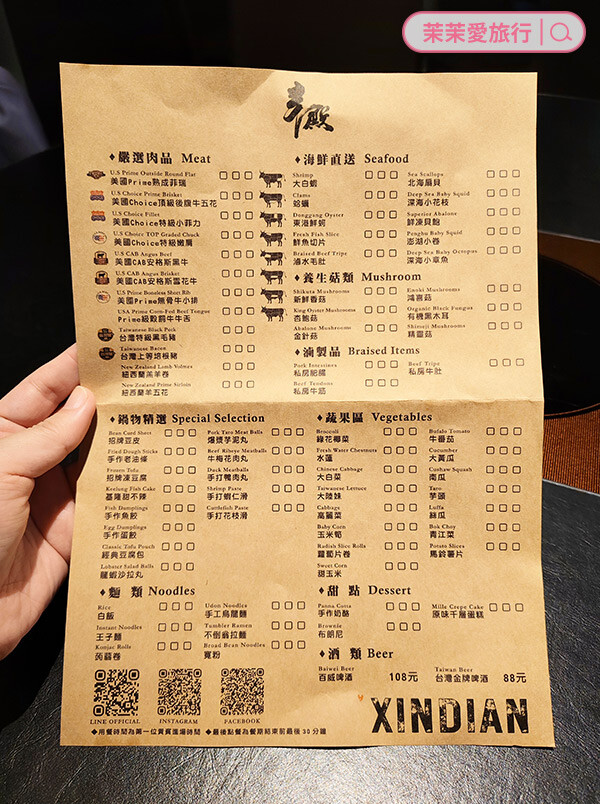 茉茉愛旅行
殿
◆嚴選肉品 Meat
U.S Prime Outside Round Flat
美國Prime熟成菲瑞
U.S Choice Prime Brisket
美國Choice頂級後腹牛五花
U.S Choice Fillet
美國Choice特級小菲力
U.S Choice TOP Graded Chuck
美國Choice特級嫩肩
U.S CAB Angus Beef
美國CAB安格斯黑牛
U.S CAB Angus Brisket
美國CAB安格斯雪花牛
U.S Prime Boneless Short Rib
美國Prime無骨牛小排
USA Prime Corn-Fed Beef Tongue
Prime級穀飼牛牛舌
Taiwanese Black Pork
台灣特級黑毛豬
Taiwanese Bacon
台灣上等培根豬
New Zealand Lamb Volmex
紐西蘭羔羊卷
New Zealand Prime Sirloin
紐西蘭羊五花
◆海鮮直送 Seafood
Shrimp
大白蝦
Clams
蛤蠣
Donggang Oyster
東港鮮蚵
Fresh Fish Slice
鮮魚切片
Braised Beef Tripe
滷水毛肚
Sea Scallops
北海扇貝
Deep Sea Baby Squid
深海小花枝
Superior Abalone
鮮凍貝殼
Penghu Baby Squid
澎湖小卷
Deep Sea Baby Octopus
深海小章魚
◆養生菇類 Mushroom
Shiitake Mushrooms
新鮮香菇
King Oyster Mushrooms
杏鮑菇
Abalone Mushrooms
金針菇
Enoki Mushrooms
鴻喜菇
Organic Black Fungus
有機黑木耳
Shimeji Mushrooms
精靈菇
◆滷製品 Braised Items
Pork Intestines
私房肥腸
Beef Tendons
私房牛筋
Beef Tripe
私房牛肚
◆鍋物精選 Special Selection
Bean Curd Sheet
招牌豆皮
Fried Dough Sticks
手作老油條
Frozen Tofu
招牌凍豆腐
Keelung Fish Cake
基隆甜不辣
Fish Dumplings
手作魚餃
Egg Dumplings
手作蛋餃
Classic Tofu Pouch
經典豆腐包
Lobster Salad Balls
龍蝦沙拉丸
Pork Taro Meat Balls
爆漿芋泥丸
Beef Ribeye Meatballs
牛梅花肉丸
Duck Meatballs
手打鴨肉丸
Shrimp Paste
手打蝦仁滑
Cuttlefish Paste
手打花枝滑
◆蔬果區 Vegetables
Broccoli
綠花椰菜
Fresh Water Chestnuts
水蓮
Chinese Cabbage
大白菜
Taiwanese Lettuce
大陸妹
Cabbage
高麗菜
Baby Corn
玉米筍
Radish Slice Rolls
蘿蔔片卷
Sweet Corn
甜玉米
Bufalo Tomato
牛番茄
Cucumber
大黃瓜
Cushaw Squash
南瓜
Taro
芋頭
Luffa
絲瓜
Bok Choy
青江菜
Potato Slices
馬鈴薯片
◆麵 類 Noodles
Rice
白飯
Instant Noodles
王子麵
Konjac Rolls
蒟蒻卷
Udon Noodles
手工烏龍麵
Tumbler Ramen
不倒翁拉麵
Broad Bean Noodles
寬粉
◆甜 點 Dessert
Panna Cotta
手作奶酪
Brownie
布朗尼
Mille Crepe Cake
原味千層蛋糕
◆酒 類 Beer
Baiwei Beer
百威啤酒 108元
Taiwan Beer
台灣金牌啤酒 88元
LINE OFFICIAL
INSTAGRAM
FACEBOOK
XINDIAN
◆用餐時間為第一位貴賓進場時間 ◆最後點餐為餐期結束前最後30分鐘